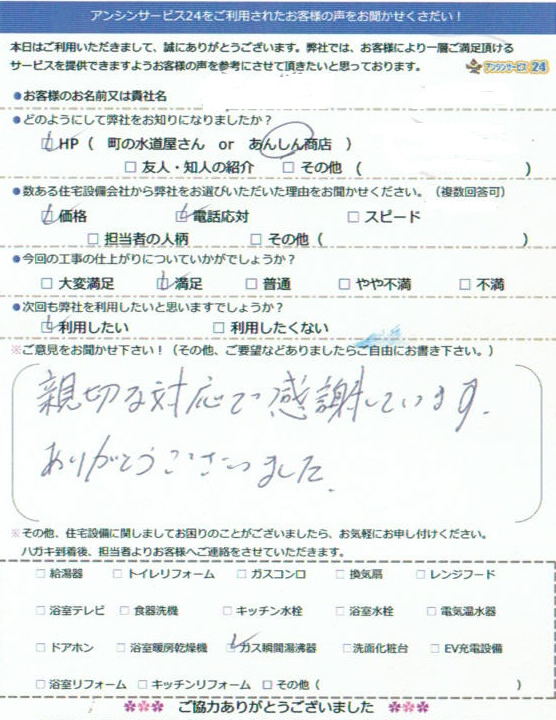 アンシンサービス24をご利用されたお客様の声をお聞かせください！
本日はご利用いただきまして、誠にありがとうございます。弊社では、お客様により一層ご満足頂ける
サービスを提供できますようお客様の声を参考にさせて頂きたいと思っております。
アンシンサービス24
●お客様のお名前又は貴社名
●どのようにして弊社をお知りになりましたか？
☑HP（ 町の水道屋さん or あんしん商店 ）
□友人・知人の紹介 □その他（ ）
●数ある住宅設備会社から弊社をお選びいただいた理由をお聞かせください。（複数回答可）
☑価格 ☑電話応対 □スピード
□担当者の人柄 □その他（ ）
●今回の工事の仕上がりについていかがでしょうか？
□大変満足 ☑満足 □普通 □やや不満 □不満
●次回も弊社を利用したいと思いますでしょうか？
☑利用したい □利用したくない
※ご意見をお聞かせ下さい！（その他、ご要望などありましたらご自由にお書き下さい。）
親切な対応で感謝しています。
ありがとうございました。
※その他、住宅設備に関しましてお困りのことがございましたら、お気軽にお申し付けください。
ハガキ到着後、担当者よりお客様へご連絡をさせていただきます。
□給湯器 □トイレリフォーム □ガスコンロ □換気扇 □レンジフード
□浴室テレビ □食器洗機 □キッチン水栓 □浴室水栓 □電気温水器
□ドアホン □浴室暖房乾燥機 ☑ガス瞬間湯沸器 □洗面化粧台 □EV充電設備
□浴室リフォーム □キッチンリフォーム □その他（ ）
ご協力ありがとうございました